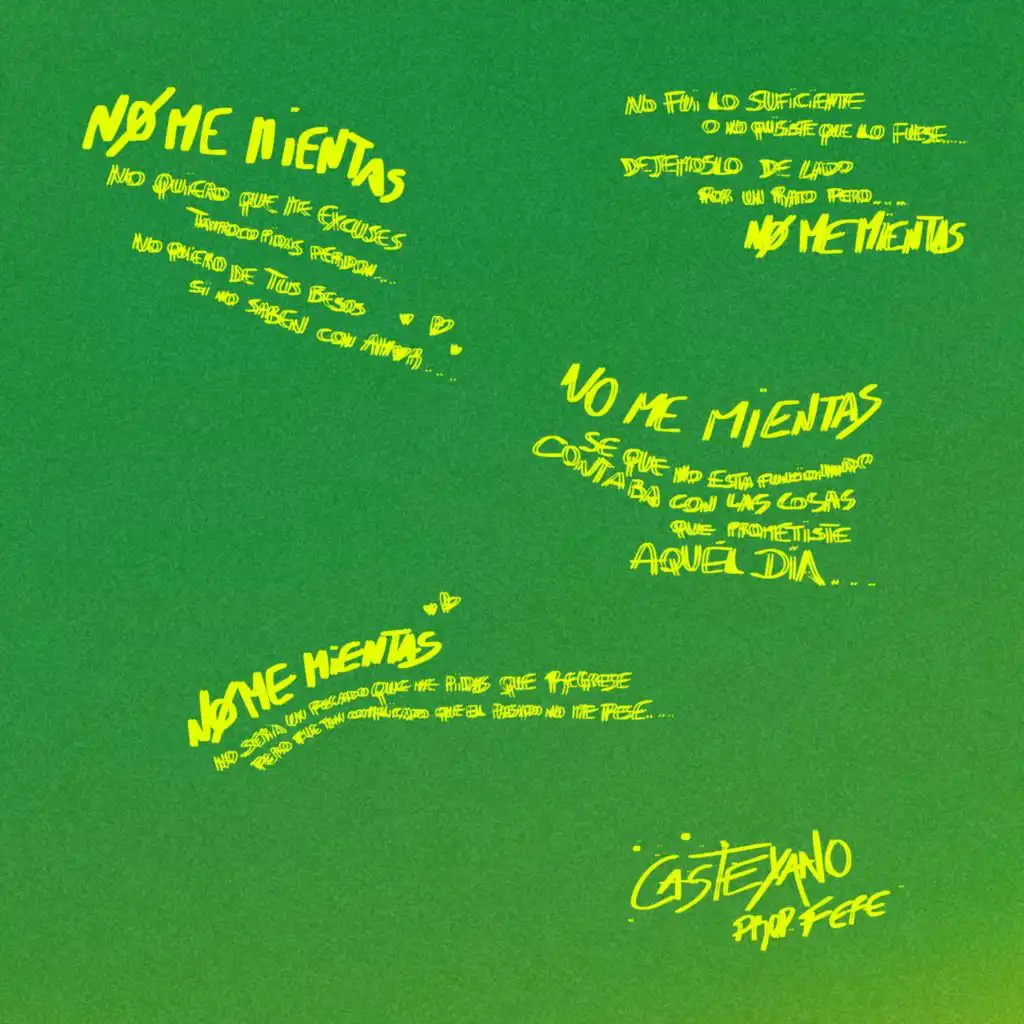 NØ ME MiENTAS
NO QUiERO QUE ME EXCUSES
TAMPOCO PiDAS PERDON....
NO QUiERO DE TUS BESOS
Si NO SABEN CON AMOR....
NO FUi LO SUFiCiENTE
O NO QUiSiSTE QUE LO FUESE.....
DEJEMOSLO DE LADO
POR UN RATO PERO....
NØ ME MiENTAS
NO ME MiENTAS
SE QUE NO ESTA FUNCiONANDO
CONTABA CON LAS COSAS
QUE PROMETiSTE
AQUÉL DÍA....
NØ ME MiENTAS
NO SERiA UN PECADO QUE ME PiDAS QUE REGRESE
PERO FUE TAN COMPLiCADO QUE EL PASADO NO ME PESE.....
CASTEYANO
PROD. FEFE